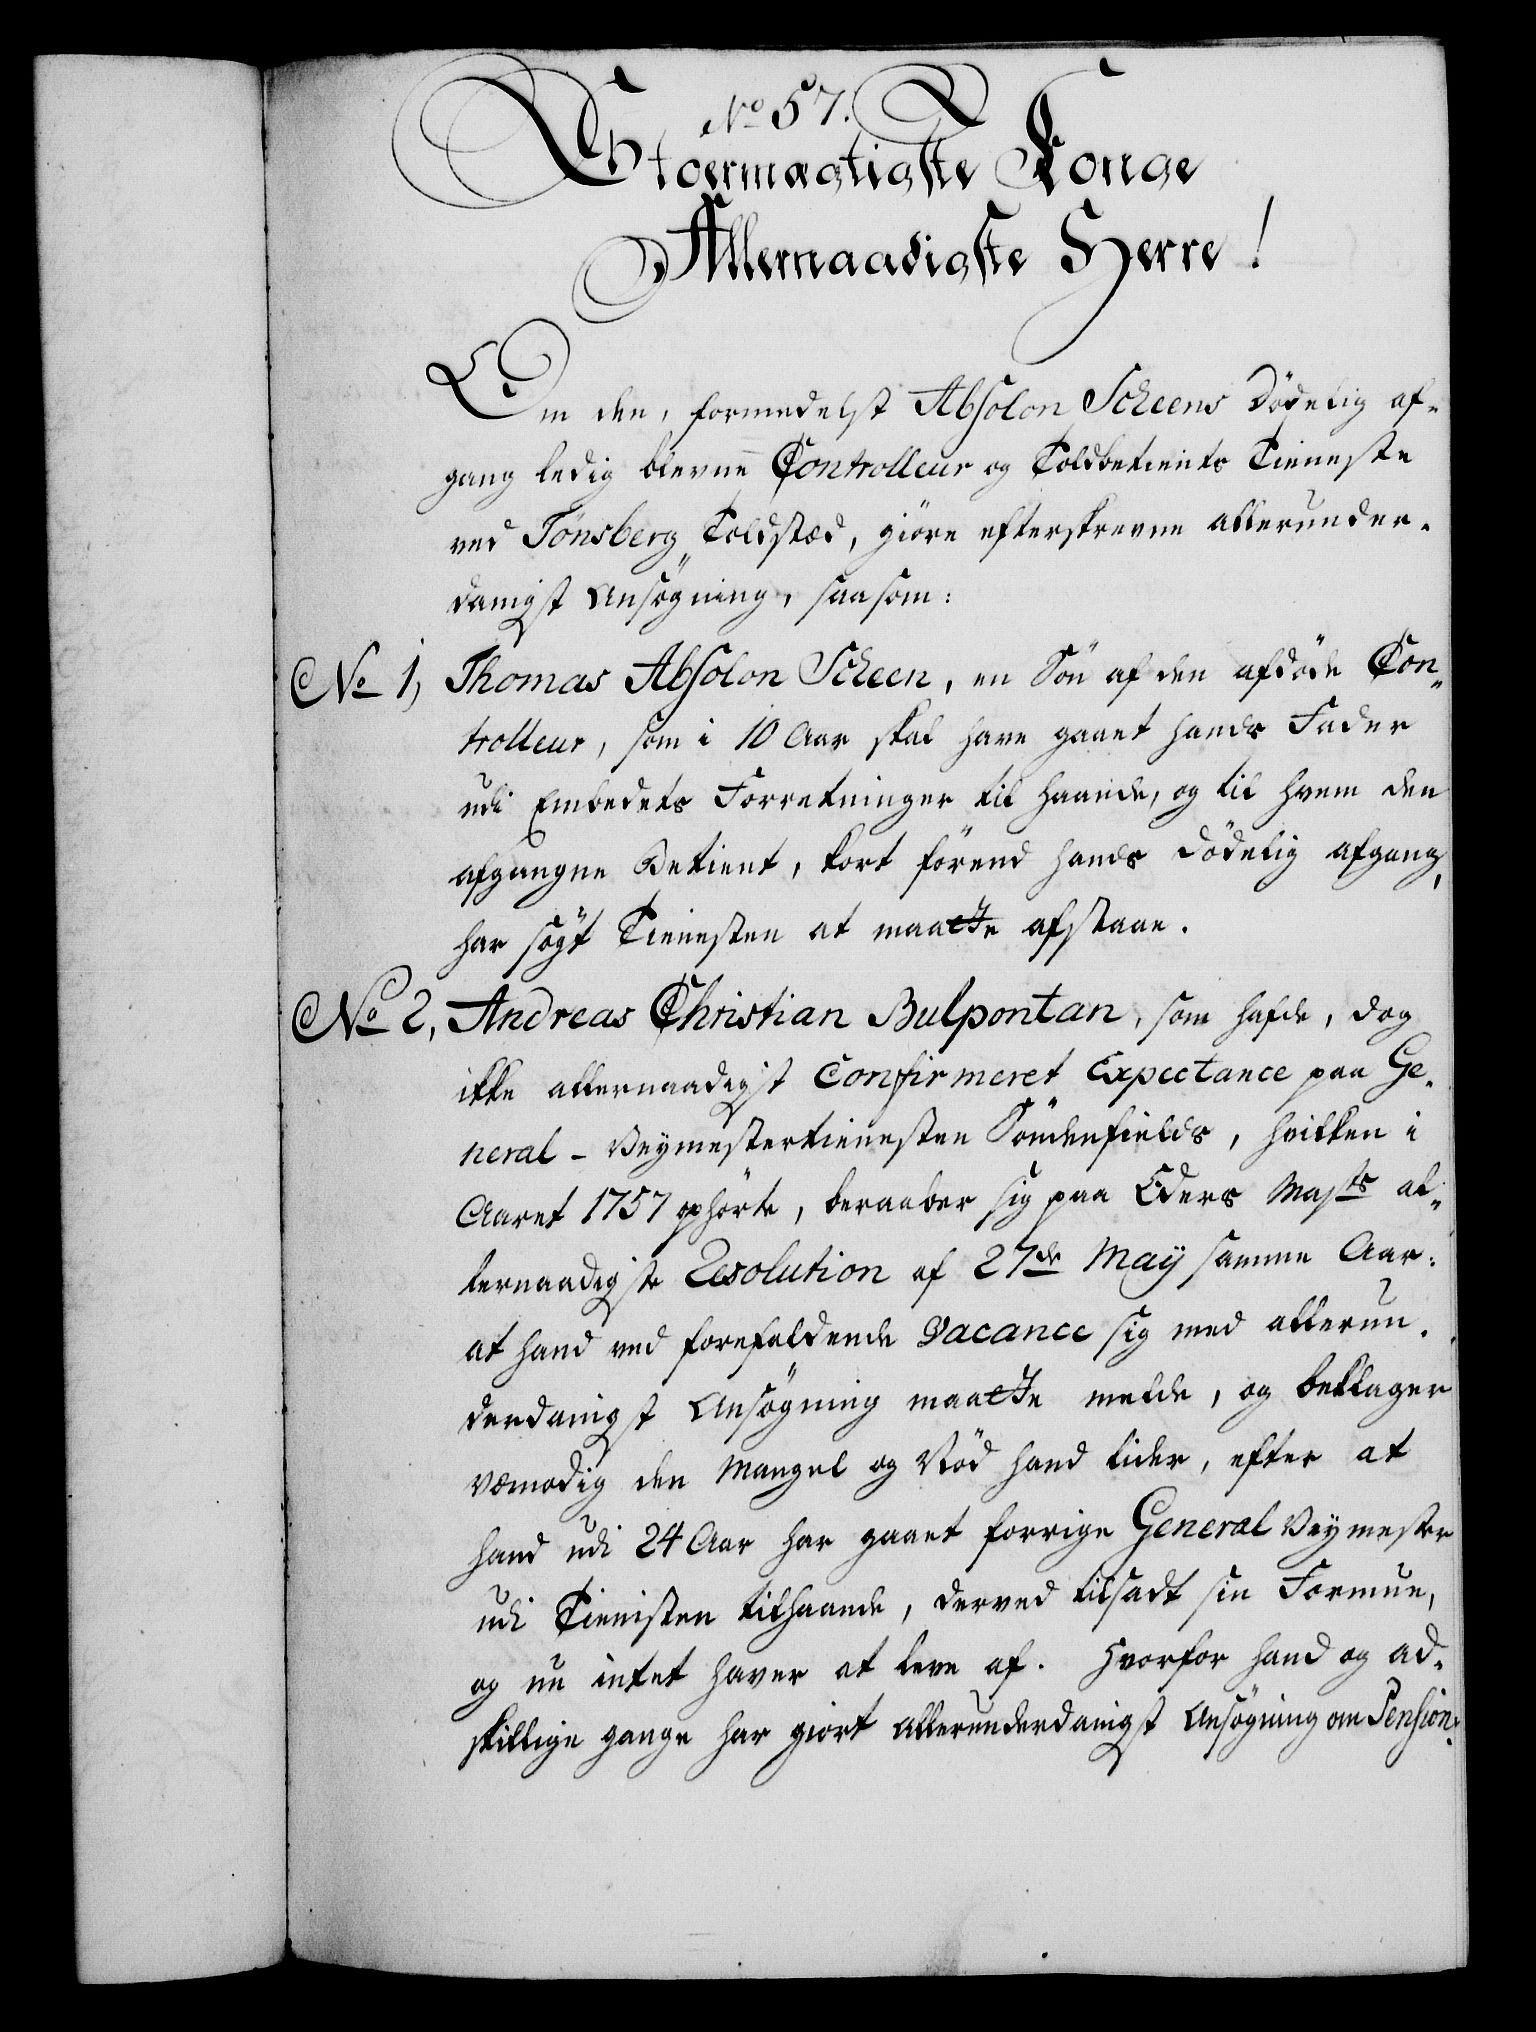 No 57.
Stoermægtigste Konge
Allernaadigste Herre!
Om den, formedelst Absolon Scheens dödelig af-
gang ledig blevne Controlleur og Toldbetients Tieneste
ved Tönsberg Toldstæd, giöre efterskrevne allerunder-
danigst Ansögning, saasom:
No 1, Thomas Absolon Scheen, en Sön af den afdöde Con-
trolleur, som i 10 Aar skal have gaaet hands Fader
udi Embedets Forretninger til haande, og til hvem den
afgangne Betient, kort förend hands dödelig afgang,
har sögt Tienesten at maatte afstaae.
No 2, Andreas Christian Bulpontan, som hafde, dog
ikke allernaadigst Confirmeret Expectance paa Ge-
neral-Veymestertienesten Söndenfields, hvilken i
Aaret 1757 ophörte, beraaber sig paa Eders Majts al-
lernaadigste Resolution af 27de May samme Aar:
at hand ved forefaldende Vacance sig med allerun-
derdanigst Ansögning maatte melde, og beklager
væmodig den Mangel og Nöd hand lider, efter at
hand udi 24 Aar har gaaet forrige General Veymester
udi Tienisten tilhaande, derved tilsadt sin Formue,
og nu intet haver at leve af. Hvorfor hand og ad-
skillige gange har giort allerunderdanigst Ansögning om Pension.